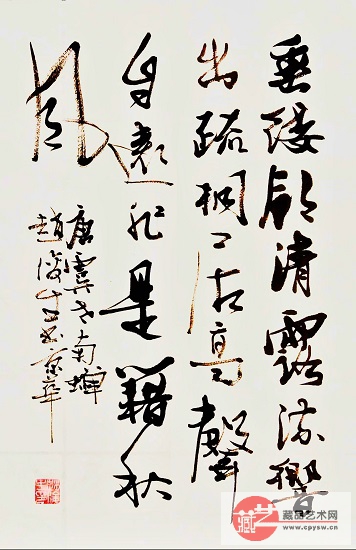 垂緌飲清露流響
出疏桐居高聲
自遠非是籍秋
風
唐虞世南蟬
趙生书京華
藏艺
藏品艺术网
www.cpysw.cn